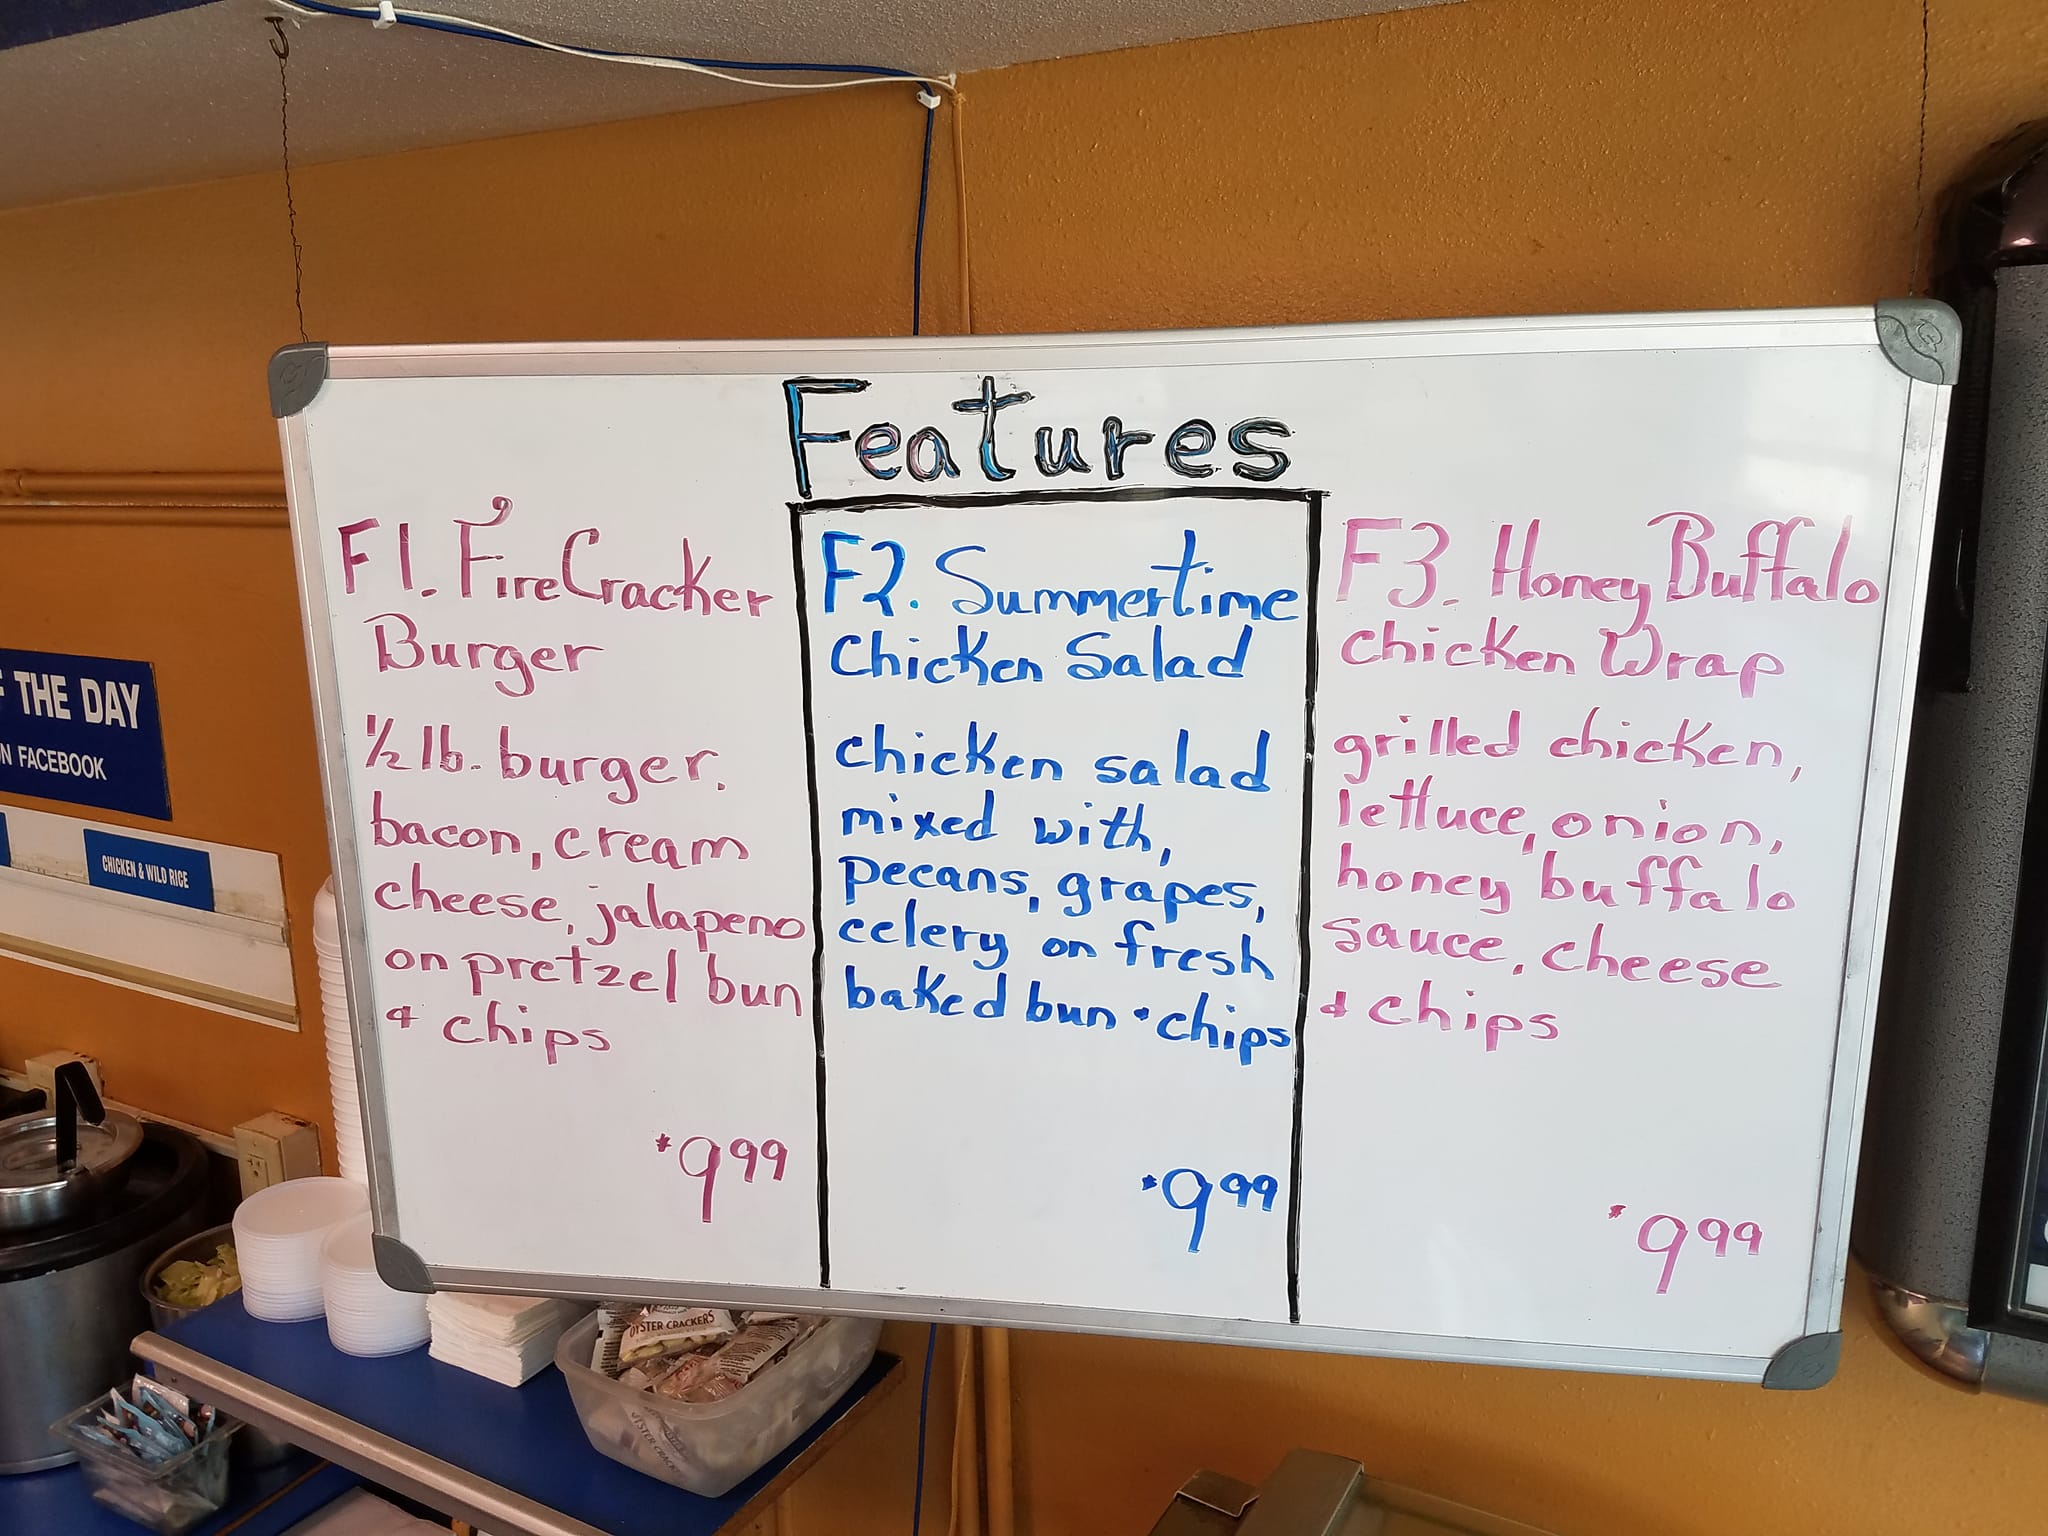 Features
F1. FireCracker
Burger
1/2 lb. burger,
bacon, cream
cheese, jalapeno
on pretzel bun
& chips
$9.99
F2. Summertime
Chicken Salad
chicken salad
mixed with,
pecans, grapes,
celery on fresh
baked bun & chips
$9.99
F3. Honey Buffalo
chicken Wrap
grilled chicken,
lettuce, onion,
honey buffalo
sauce, cheese
& chips
$9.99
THE DAY
FACEBOOK
CHICKEN & WILD RICE
OYSTER CRACKERS